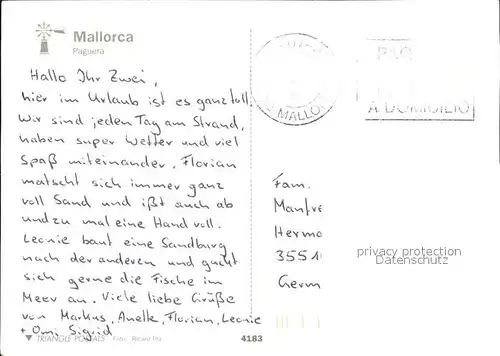 Mallorca
Paguera
Hallo Ihr Zwei,
hier im Urlaub ist es ganz toll.
Wir sind jeden Tag am Strand,
haben super Wetter und viel
Spaß miteinander. Florian
matscht sich immer ganz
voll Sand und ißt auch ab
und zu mal eine Hand voll.
Leonie baut eine Sandburg
nach der anderen und guckt
sich gerne die Fische im
Meer an. Viele liebe Grüße
von Markus, Anette, Florian, Leonie
+ Omi Sigrid
TRIANGLE POSTALS Foto: Ricard Pla
4183
MALLO
A DOMICILIO
Fam.
Manfre
Hermo
3551
Germ
privacy protection
Datenschutz